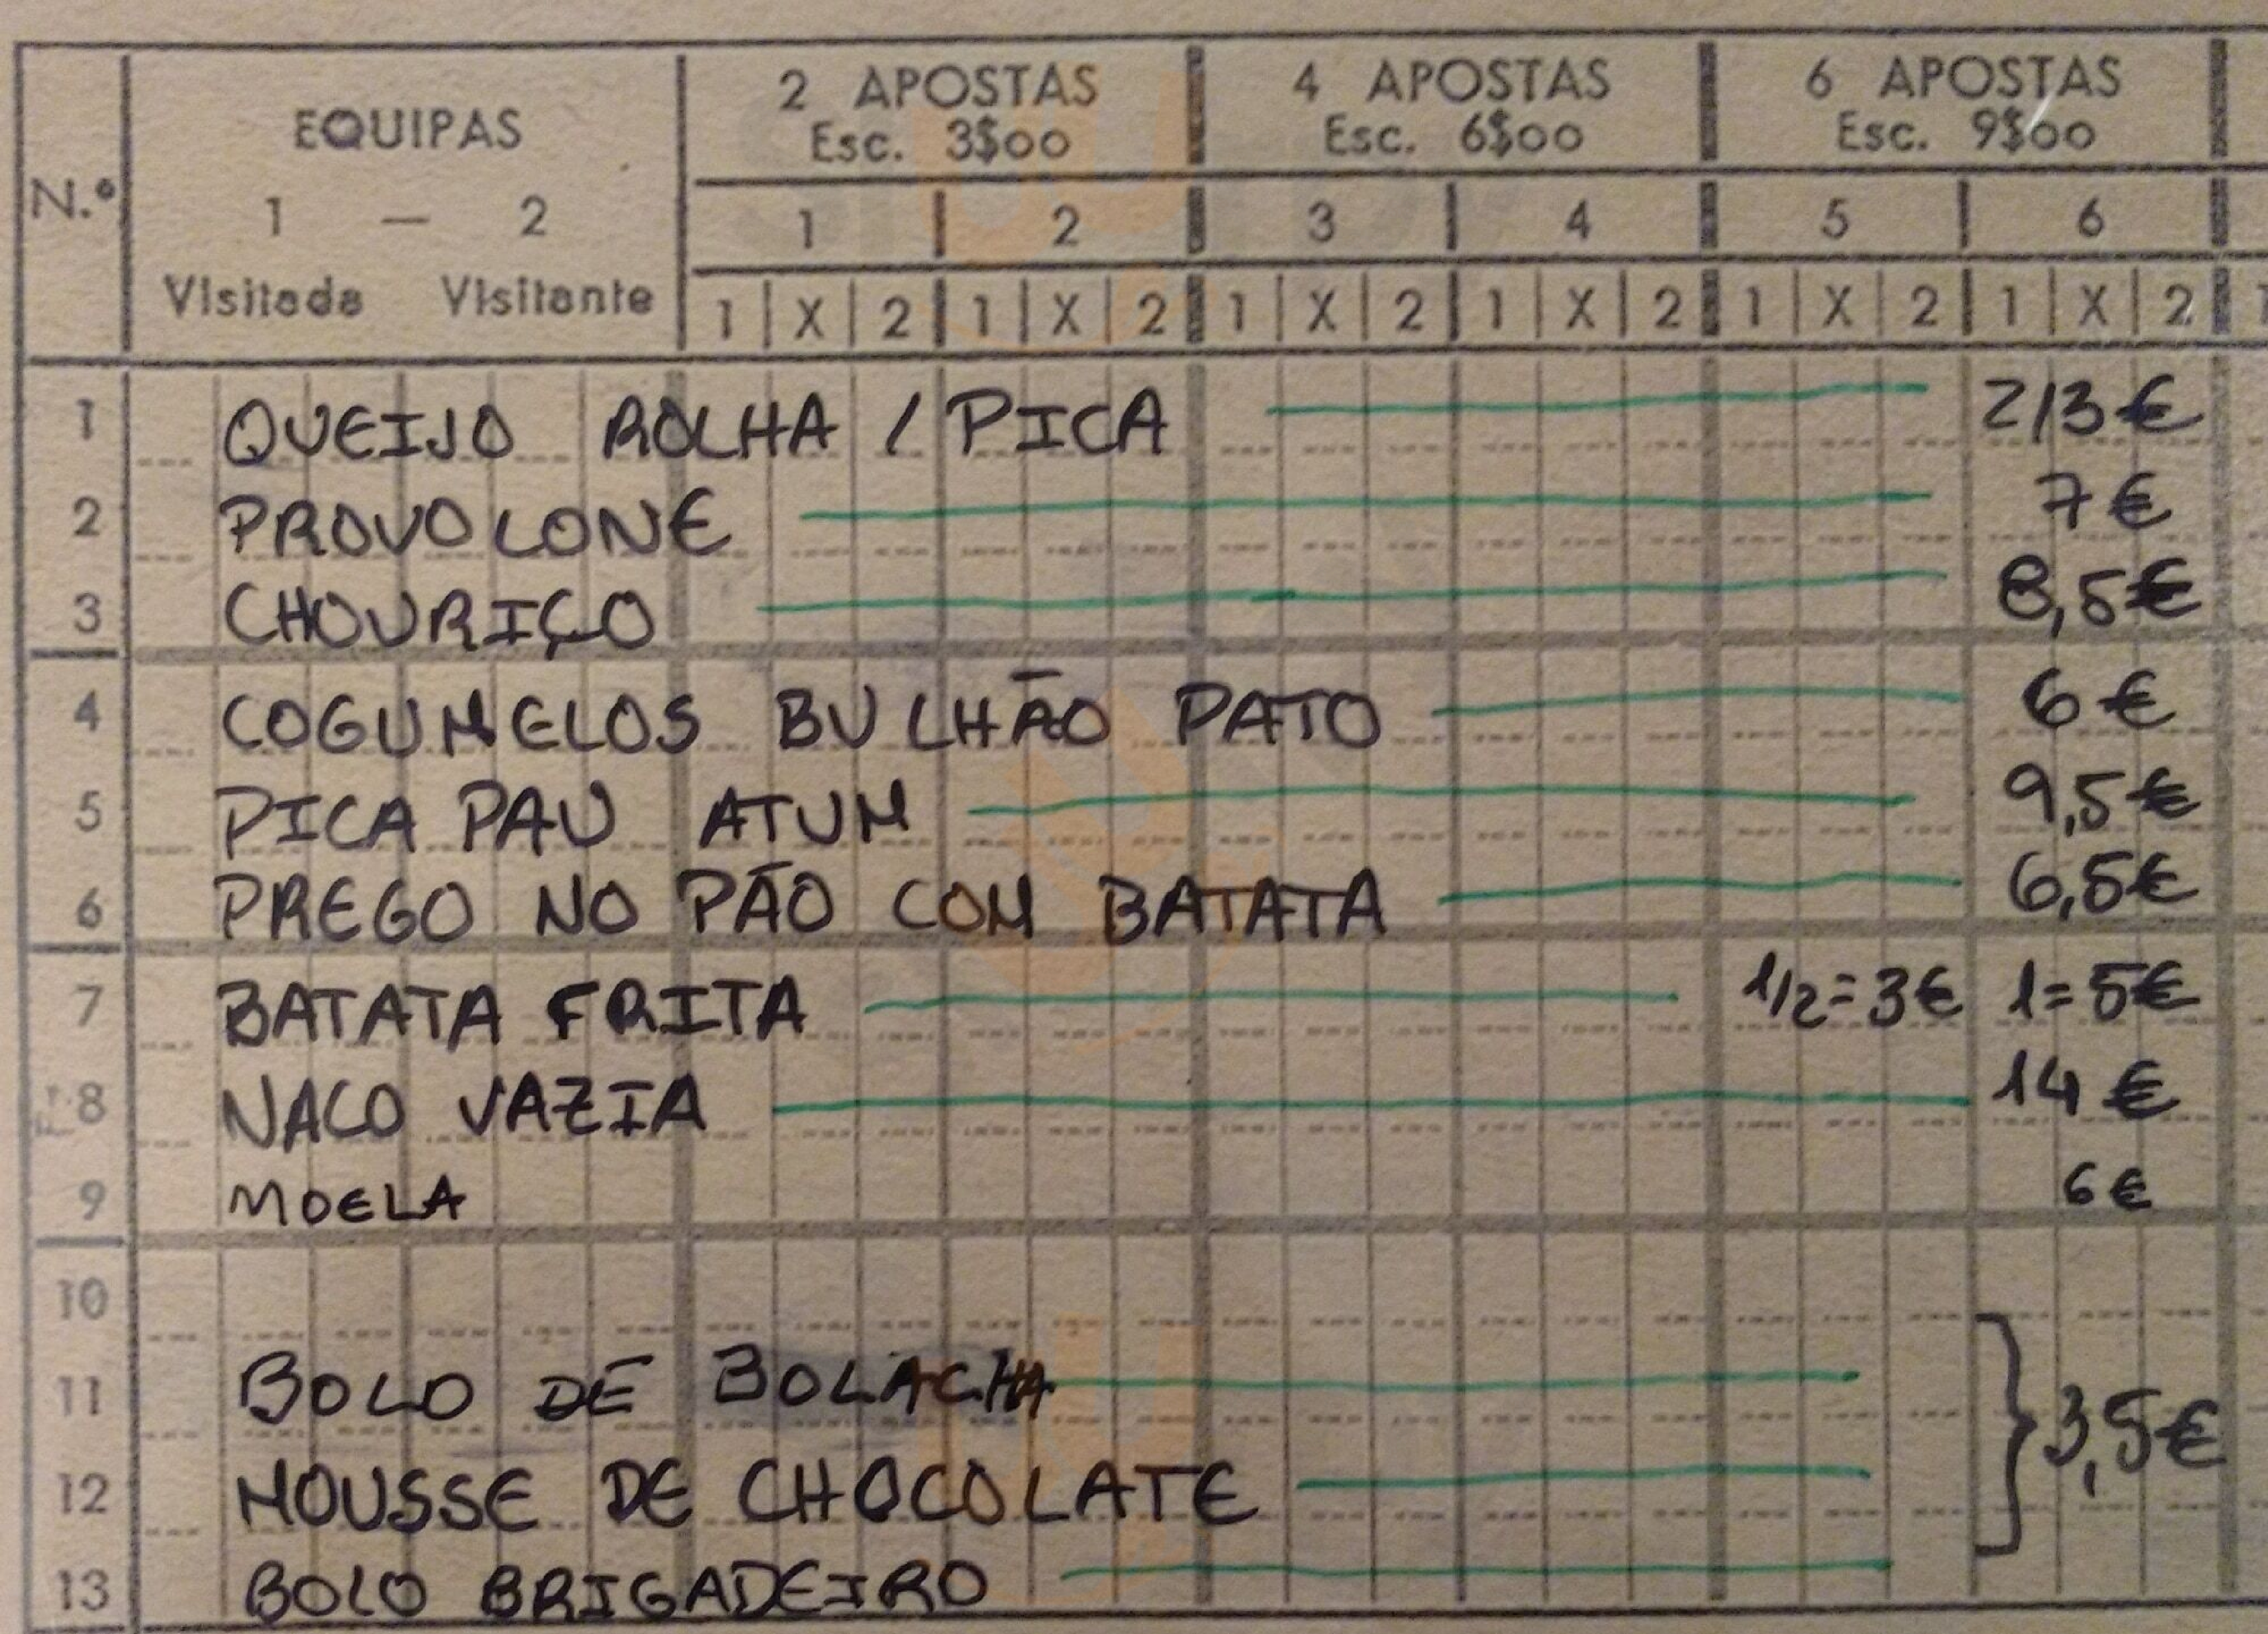 N.º EQUIPAS 2 APOSTAS 4 APOSTAS 6 APOSTAS
Esc. 3$00 Esc. 6$00 Esc. 9$00
1 — 2 1 2 3 4 5 6
Visitada Visitante 1 X 2 1 X 2 1 X 2 1 X 2 1 X 2 1 X 2
1 QUEIJO ROLHA / PICA 2/3€
2 PROVOLONE 7€
3 CHOURIÇO 8,5€
4 COGUMELOS BULHÃO PATO 6€
5 PICA PAU ATUM 9,5€
6 PREGO NO PÃO COM BATATA 6,5€
7 BATATA FRITA 1/2=3€ 1=5€
8 NACO VAZIA 14€
9 MOELA 6€
10
11 BOLO DE BOLACHA
12 MOUSSE DE CHOCOLATE 3,5€
13 BOLO BRIGADEIRO